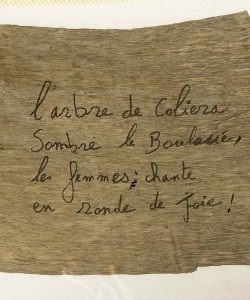 l'arbre de Coliers
Sombre le
les femmes; chante
en ronde de Joie !